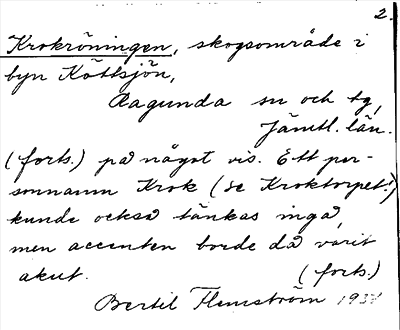 2.
Krokröningen, skogsområde i
byn Köttsjön,
Ragunda sn och tg,
Jämtl. län.
(forts.) på något vis. Ett per-
sonnamn Krok (se Kroktorpet!)
kunde också tänkas ingå,
men accenten borde då varit
akut. (forts.)
Bertil Flemström 1938